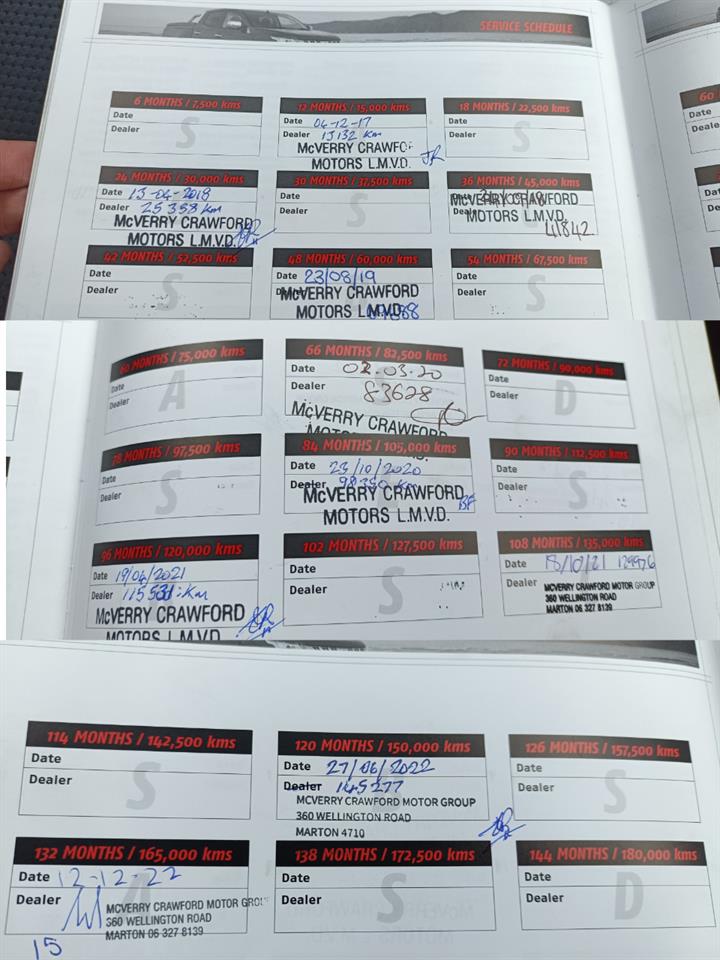 SERVICE SCHEDULE
6 MONTHS / 7,500 kms
Date
Dealer
S
12 MONTHS / 15,000 kms
Date 04-12-17
Dealer 13132 Km
McVERRY CRAWFO
MOTORS L.M.V.D.
18 MONTHS / 22,500 kms
Date
Dealer
S
24 MONTHS / 30,000 kms
Date 13-04-2018
Dealer 25358 Km
McVERRY CRAWFORD
MOTORS L.M.V.D.
30 MONTHS / 37,500 kms
Date
Dealer
S
36 MONTHS / 45,000 kms
McVERRY CRAWFORD
Dealer MOTORS L.M.V.D.
41842
42 MONTHS / 52,500 kms
Date
Dealer
S
48 MONTHS / 60,000 kms
Date 23/08/19
McVERRY CRAWFORD
MOTORS L.M.V.D.
54 MONTHS / 67,500 kms
Date
Dealer
S
60
60 MONTHS / 75,000 kms
Date
Dealer
A
66 MONTHS / 82,500 kms
Date 02.03.20
Dealer 83628
McVERRY CRAWFORD
72 MONTHS / 90,000 kms
Date
Dealer
D
78 MONTHS / 97,500 kms
Date
Dealer
S
84 MONTHS / 105,000 kms
Date 23/10/2020
Dealer 98350 Km
McVERRY CRAWFORD
MOTORS L.M.V.D.
90 MONTHS / 112,500 kms
Date
Dealer
S
96 MONTHS / 120,000 kms
Date 19/04/2021
Dealer 115531 Km
McVERRY CRAWFORD
MOTORS L.M.V.D.
102 MONTHS / 127,500 kms
Date
Dealer
S
108 MONTHS / 135,000 kms
Date 18/10/21 129976
Dealer MCVERRY CRAWFORD MOTOR GROUP
360 WELLINGTON ROAD
MARTON 06 327 8139
114 MONTHS / 142,500 kms
Date
Dealer
S
120 MONTHS / 150,000 kms
Date 27/06/2022
Dealer 145277
MCVERRY CRAWFORD MOTOR GROUP
360 WELLINGTON ROAD
MARTON 4710
126 MONTHS / 157,500 kms
Date
Dealer
S
132 MONTHS / 165,000 kms
Date 12-12-22
Dealer
A
MCVERRY CRAWFORD MOTOR GROU
360 WELLINGTON ROAD
MARTON 06 327 8139
15
138 MONTHS / 172,500 kms
Date
Dealer
S
144 MONTHS / 180,000 kms
Date
Dealer
D